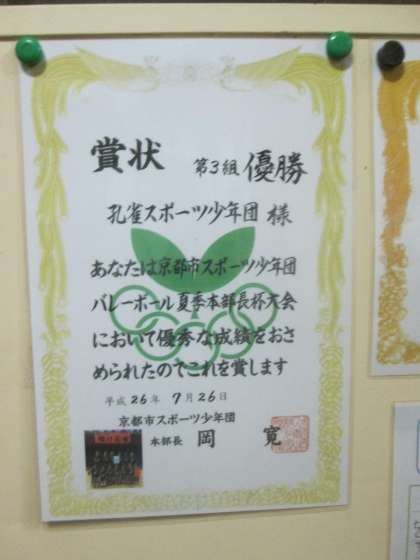 賞状 第3組 優勝
孔雀スポーツ少年団 様
あなたは京都市スポーツ少年団
バレーボール夏季本部長杯大会
において優秀な成績をおさ
められたのでこれを賞します
平成26年 7月26日
京都市スポーツ少年団
本部長 岡 寛